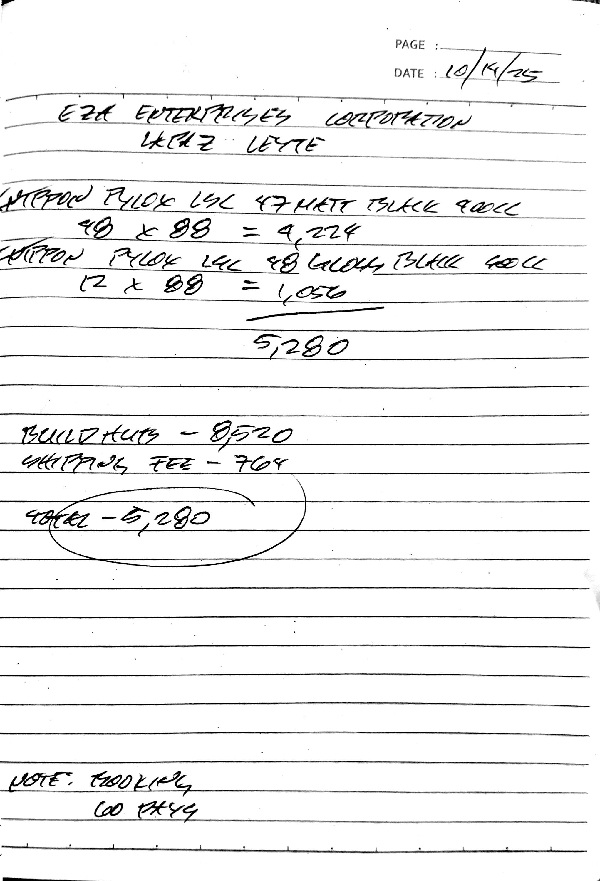 PAGE :
DATE : 10/14/25
EZA ENTERPRISES CORPORATION
LAPAZ LEYTE
NIPPON PYLOX LSC 47 MATT BLACK 400CC
48 x 88 = 4,224
NIPPON PYLOX LSC 48 GLOSS BLACK 400CC
12 x 88 = 1,056
5,280
BUILDHUB - 8,520
SHIPPING FEE - 764
TOTAL - 5,280
NOTE: BOOKING
60 DAYS